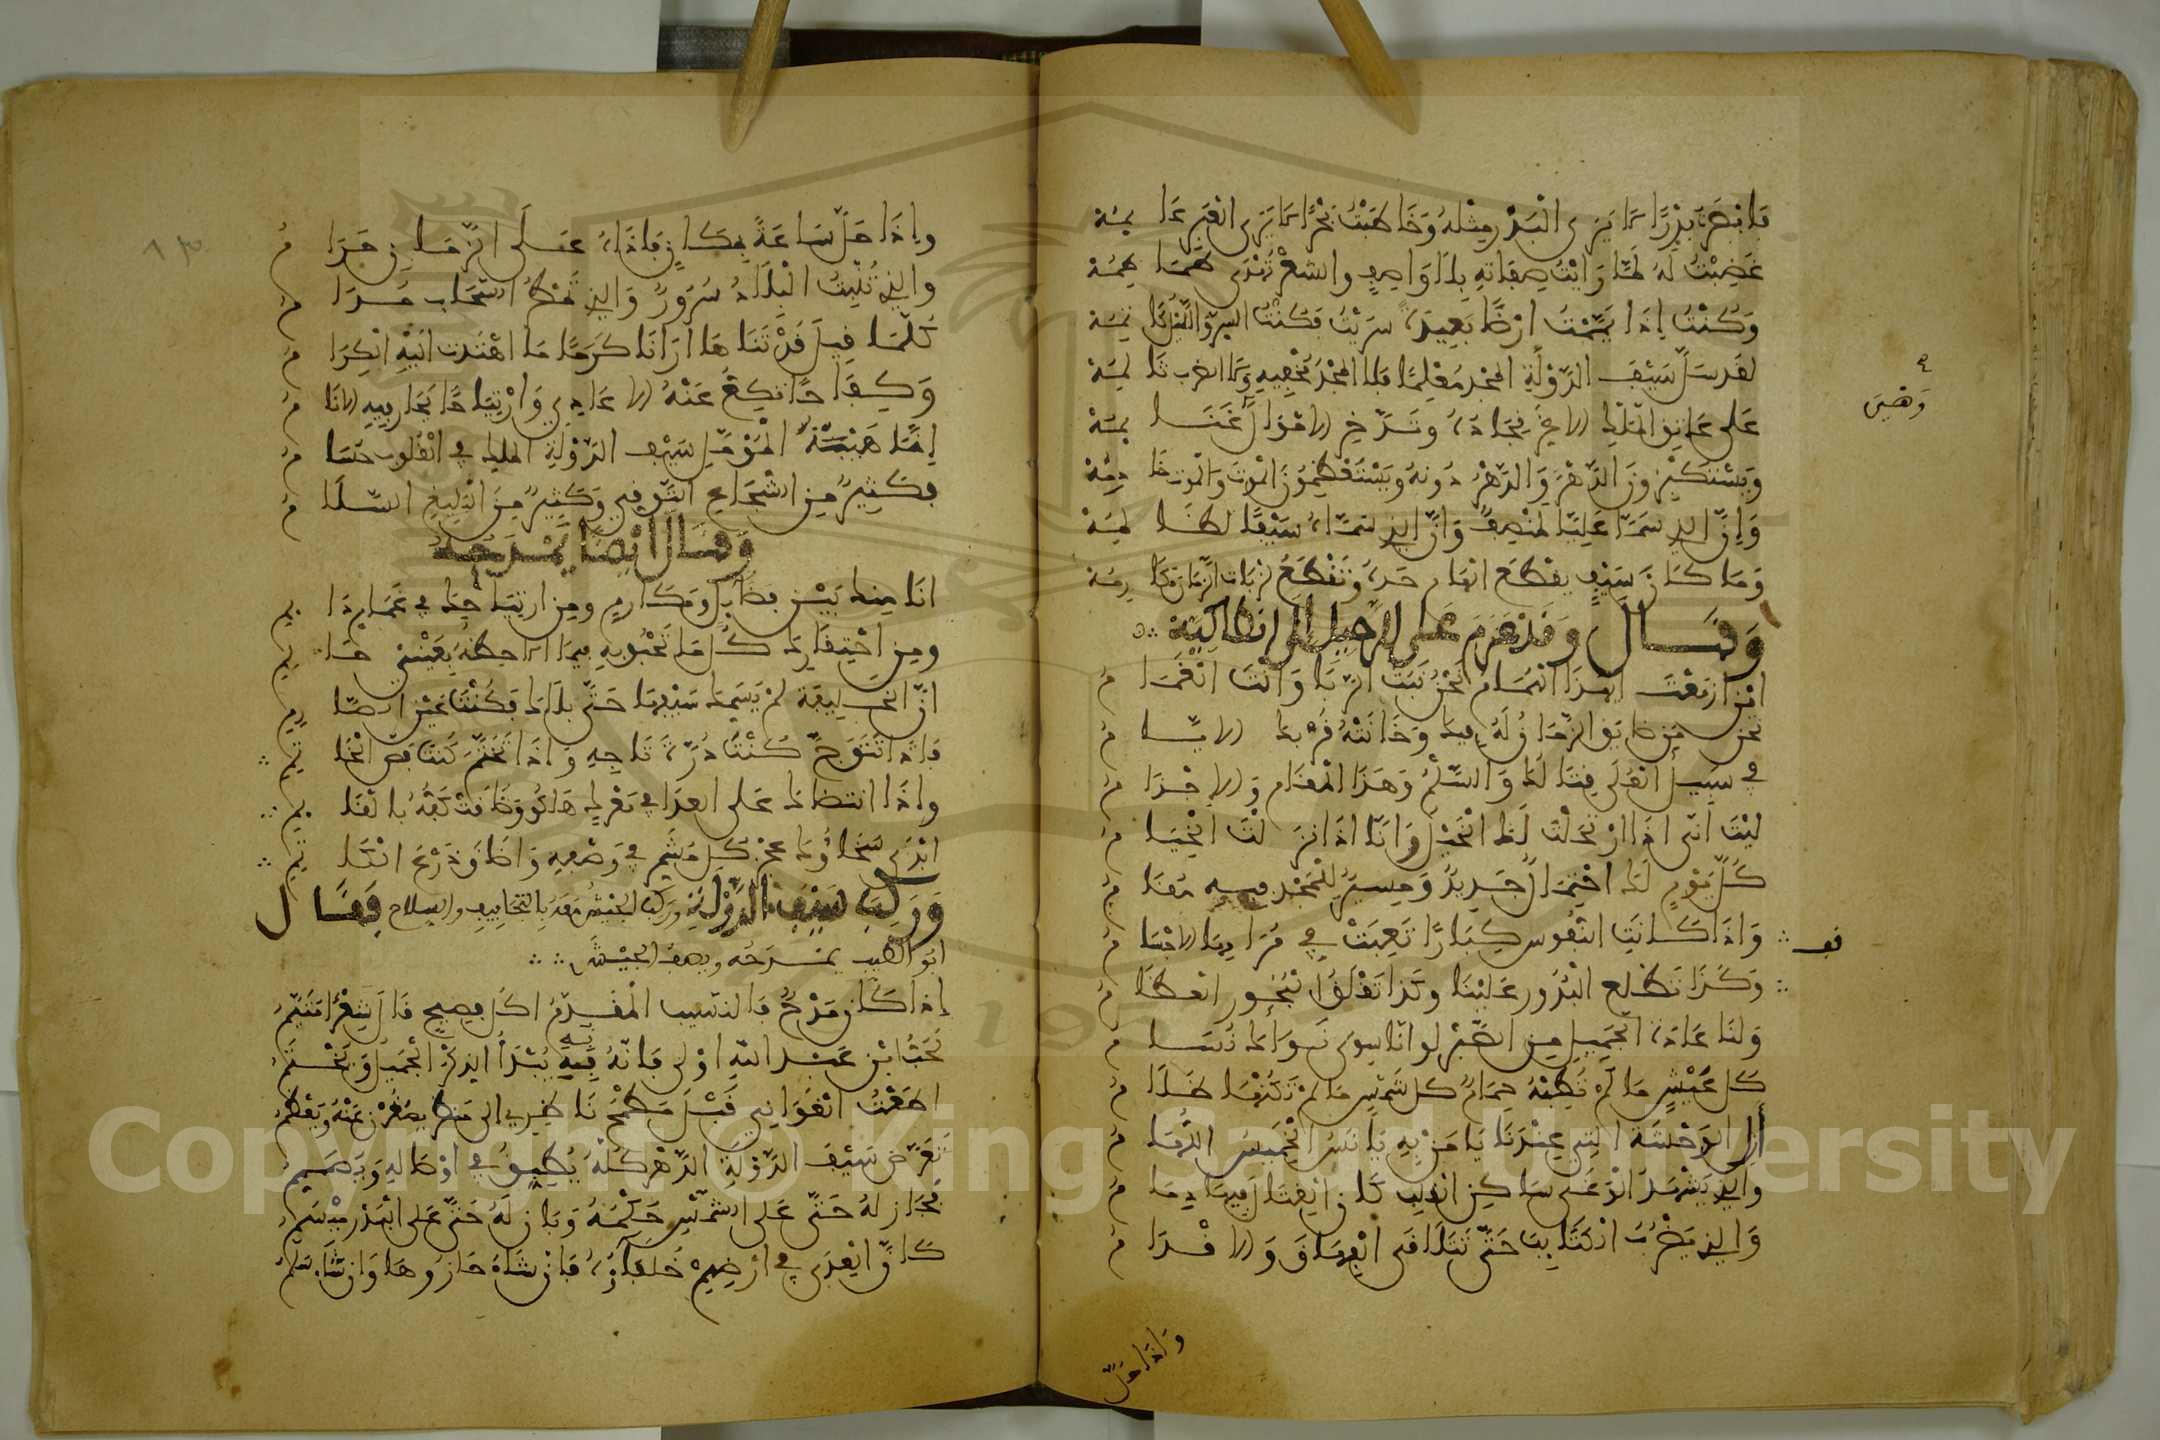 فَأَبْصَرْتُ بَدْرًا لَا يَرَى الْبَدْرُ مِثْلَهُ وَخَاطَبْتُ بَحْرًا لَا يَرَى الْعِبْرَ عَائِمُهْ
غَضِبْتُ لَهُ لَمَّا رَأَيْتُ صِفَاتِهِ بِلَا وَاصِفٍ وَالشِّعْرُ تَهْذِي طَمَاطِمُهْ
وَكُنْتُ إِذَا يَمَّمْتُ أَرْضًا بَعِيدَةً سَرَيْتُ فَكُنْتُ السِّرَّ وَاللَّيْلُ كَاتِمُهْ
لَقَدْ سَلَّ سَيْفَ الدَّوْلَةِ الْمَجْدُ مُعْلِمًا فَلَا الْمَجْدُ مُخْفِيهِ وَلَا الضَّرْبُ ثَالِمُهْ
عَلَى عَاتِقِ الْمَلْكِ الْأَغَرِّ نِجَادُهُ وَفِي يَدِ
وَيَسْتَكْبِرُونَ الدَّهْرَ وَالدَّهْرُ دُونَهُ وَيَسْتَعْظِمُونَ الْمَوْتَ وَالْمَوْتُ خَادِمُهْ
وَإِنَّ الَّذِي سَمَّى عَلِيًّا لَمُنْصِفٌ وَإِنَّ الَّذِي سَمَّاهُ سَيْفًا لَظَالِمُهْ
وَمَا كُلُّ سَيْفٍ يَقْطَعُ الْهَامَ حَدُّهُ وَتَقْطَعُ لَزْبَاتِ الزَّمَانِ مَكَارِمُهْ
وَقَالَ وَقَدْ عَزَمَ عَلَى الرَّحِيلِ إِلَى أَنْطَاكِيَّةَ
أَيْنَ أَزْمَعْتَ أَيُّهَذَا الْهُمَامُ نَحْنُ نَبْتُ الرُّبَا وَأَنْتَ الْغَمَامُ
نَحْنُ مَنْ ضَايَقَ الزَّمَانُ لَهُ فِيكَ وَخَانَتْهُ قُرْبَكَ الْأَيَّامُ
فِي سَبِيلِ الْعُلَى قِتَالُكَ وَالسِّلْمُ وَهَذَا الْمُقَامُ وَالْإِجْذَامُ
لَيْتَ أَنَّا إِذَا ارْتَحَلْتَ لَكَ الْخَيْلُ وَأَنَّا إِذَا نَزَلْتَ الْخِيَامُ
كُلَّ يَوْمٍ لَكَ احْتِمَالٌ جَدِيدٌ وَمَسِيرٌ لِلْمَجْدِ فِيهِ مُقَامُ
وَإِذَا كَانَتِ النُّفُوسُ كِبَارًا تَعِبَتْ فِي مُرَادِهَا الْأَجْسَامُ
وَكَذَا تَطْلُعُ الْبُدُورُ عَلَيْنَا وَكَذَا تَقْلَقُ الْبُحُورُ الْعِظَامُ
وَلَنَا عَادَةُ الْجَمِيلِ مِنَ الصَّبْرِ لَوْ أَنَّا سِوَى نَوَاكَ نُسَامُ
كُلُّ عَيْشٍ مَا لَمْ تُطِبْهُ حِمَامٌ كُلُّ شَمْسٍ مَا لَمْ تَكُنْهَا ظَلَامُ
أَزِلِ الْوَحْشَةَ الَّتِي عِنْدَنَا يَا مَنْ بِهِ يَأْنَسُ الْخَمِيسُ اللُّهَامُ
وَالَّذِي يَشْهَدُ الْوَغَى سَاكِنَ الْقَلْبِ كَأَنَّ الْقِتَالَ فِيهَا ذِمَامُ
وَالَّذِي يَضْرِبُ الْكَتَائِبَ حَتَّى تَتَلَاقَى الْفِهَاقُ وَالْأَقْدَامُ
وَإِذَا حَلَّ
وَإِذَا حَلَّ سَاعَةً بِمَكَانٍ فَأَذَاهُ عَلَى الزَّمَانِ حَرَامُ
وَالَّذِي تُنْبِتُ الْبِلَادُ سُرُورٌ وَالَّذِي تَمْطُرُ السَّحَابُ مُدَامُ
كُلَّمَا قِيلَ قَدْ تَنَاهَى أَرَانَا كَرَمًا مَا اهْتَدَتْ إِلَيْهِ الْكِرَامُ
وَكِفَاحًا تَكِعُّ عَنْهُ الْأَعَادِي وَارْتِيَاحًا تَحَارُ فِيهِ الْأَنَامُ
إِنَّمَا هَيْبَةُ الْمُؤَمَّلِ سَيْفِ الدَّوْلَةِ الْمَلْكِ فِي الْقُلُوبِ حُسَامُ
فَكَثِيرٌ مِنَ الشُّجَاعِ التَّوَقِّي وَكَثِيرٌ مِنَ الْبَلِيغِ السَّلَامُ
وَقَالَ أَيْضًا يَمْدَحُهُ
أَنَا مِنْكَ بَيْنَ فَضَائِلٍ وَمَكَارِمٍ وَمِنِ ارْتِيَاحِكَ فِي غَمَامٍ دَائِمِ
وَمِنِ احْتِقَارِكَ كُلَّ مَا تَحْبُو بِهِ فِيمَا أُلَاحِظُهُ بِعَيْنَيْ حَالِمِ
إِنَّ الْخَلِيفَةَ لَمْ يُسَمِّكَ سَيْفَهَا حَتَّى بَلَاكَ فَكُنْتَ عَيْنَ الصَّارِمِ
فَإِذَا تَتَوَّجَ كُنْتَ دُرَّةَ تَاجِهِ وَإِذَا تَخَتَّمَ كُنْتَ فَصَّ الْخَاتَمِ
وَإِذَا انْتَضَاكَ عَلَى الْعِدَا فِي مَعْرَكٍ هَلَكُوا وَضَاقَتْ كَفُّهُ بِالْقَائِمِ
أَبْدَى سَخَاؤُكَ عَجْزَ كُلِّ مُشَمِّرٍ فِي وَصْفِهِ وَأَضَاقَ ذَرْعَ الْكَاتِمِ
وَرَكِبَ سَيْفُ الدَّوْلَةِ وَرَكِبَ الْجَيْشُ مَعَهُ بِالتَّجَافِيفِ وَالسِّلَاحِ فَقَالَ
أَبُو الطَّيِّبِ يَمْدَحُهُ وَيَصِفُ الْجَيْشَ
إِذَا كَانَ مَدْحٌ فَالنَّسِيبُ الْمُقَدَّمُ أَكُلُّ فَصِيحٍ قَالَ شِعْرًا مُتَيَّمُ
لَحُبُّ ابْنِ عَبْدِ اللهِ أَوْلَى فَإِنَّهُ بِهِ يُبْدَأُ الذِّكْرُ الْجَمِيلُ وَيُخْتَمُ
أَطَعْتُ الْغَوَانِي قَبْلَ مَطْمَحِ نَاظِرِي إِلَى مَنْظَرٍ يَصْغُرْنَ عَنْهُ وَيَعْظُمُ
تَعَرَّضَ سَيْفُ الدَّوْلَةِ الدَّهْرَ كُلَّهُ يُطَبِّقُ فِي أَوْصَالِهِ وَيُصَمِّمُ
فَجَازَ لَهُ حَتَّى عَلَى الشَّمْسِ حُكْمُهُ وَبَانَ لَهُ حَتَّى عَلَى الْبَدْرِ مِيسَمُ
كَأَنَّ الْعِدَى فِي أَرْضِهِمْ خُلَفَاؤُهُ فَإِنْ شَاءَ حَازُوهَا وَإِنْ شَاءَ سَلَّمُوا